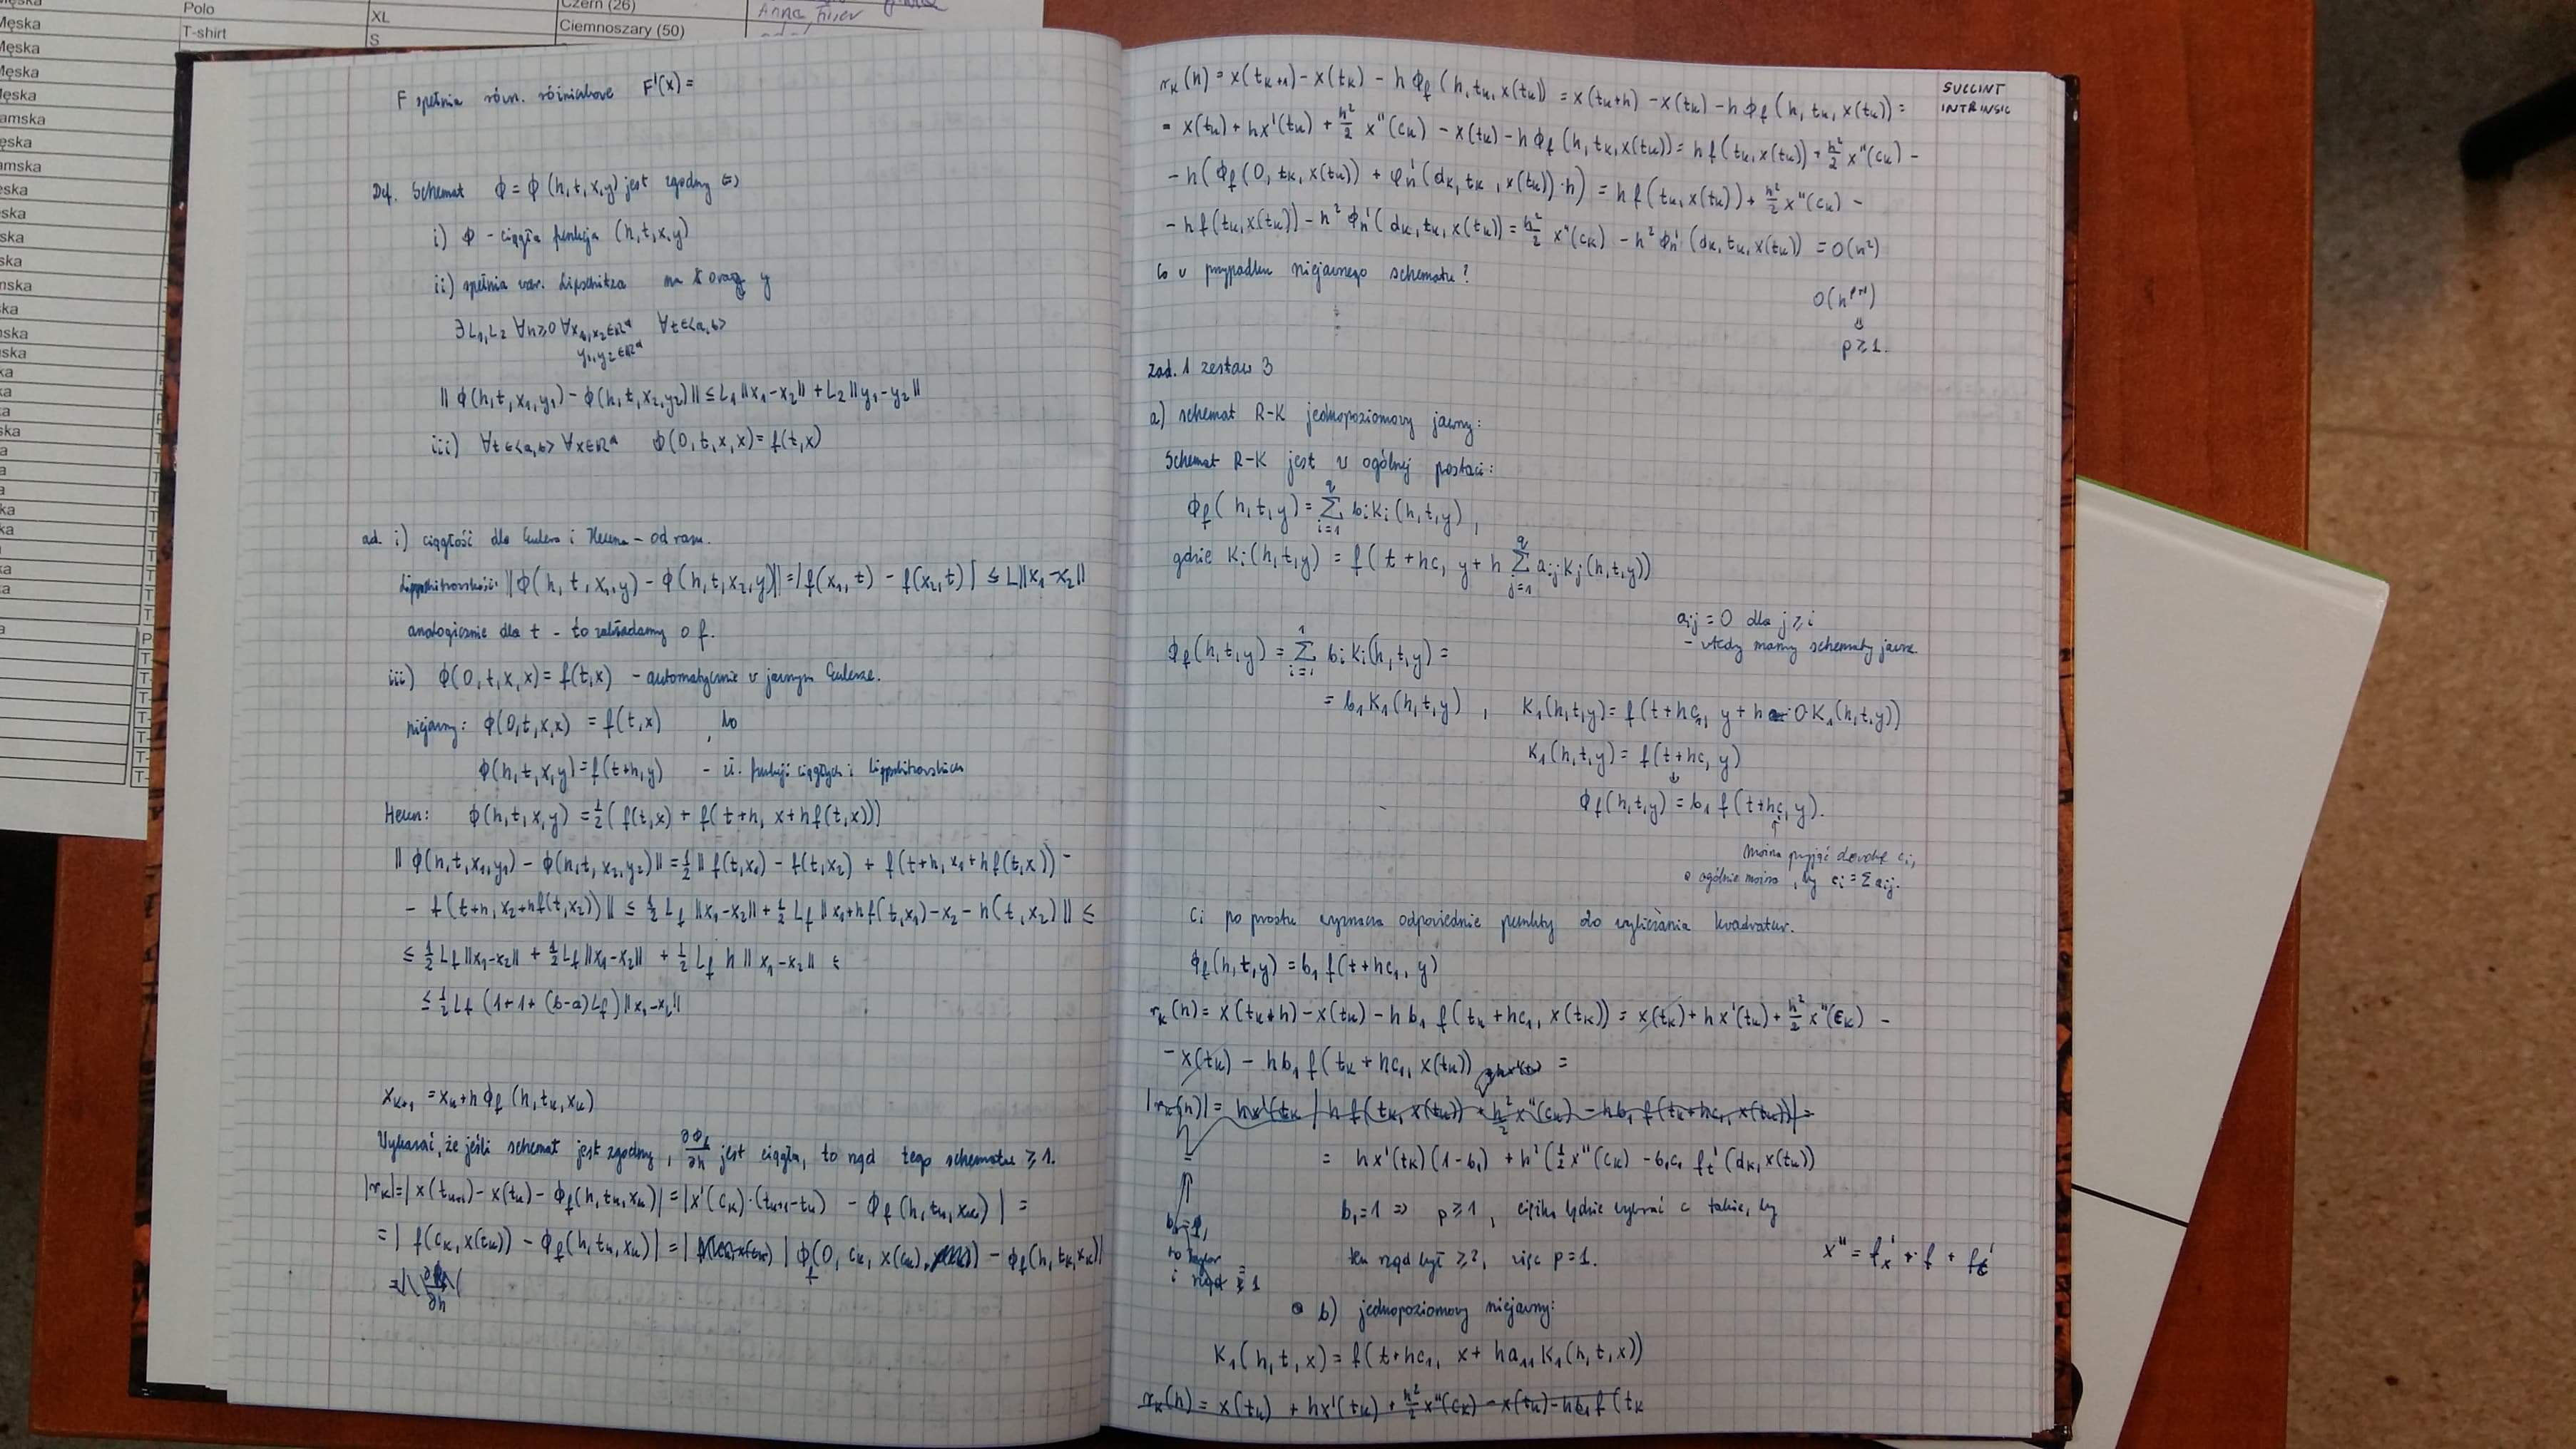 Męska
Męska
Męska
Męska
Męska
Damska
Męska
Damska
Polo
T-shirt
XL
S
Czern (26)
Ciemnoszary (50)
F spełnia równ. różniczkowe F'(x) =
Def. Schemat ϕ = ϕ(h,t,x,y) jest zgodny ⇔
i) ϕ - ciągła funkcja (h,t,x,y)
ii) spełnia war. Lipschitza na x oraz y
∃ L₁,L₂ ∀h≥0 ∀x₁,x₂∈ℝᵈ ∀t∈<a,b>
y₁,y₂∈ℝᵈ
‖ϕ(h,t,x₁,y₁) - ϕ(h,t,x₂,y₂)‖ ≤ L₁‖x₁-x₂‖ + L₂‖y₁-y₂‖
iii) ∀t∈<a,b> ∀x∈ℝᵈ ϕ(0,t,x,x) = f(t,x)
ad. i) ciągłość dla Eulera i Heuna - od razu.
‖ϕ(h,t,x₁,y) - ϕ(h,t,x₂,y)‖ = |f(x₁,t) - f(x₂,t)| ≤ L‖x₁-x₂‖
analogicznie dla t - to zakładamy o f.
iii) ϕ(0,t,x,x) = f(t,x) - automatycznie w jawnym Eulerze.
niejawny: ϕ(0,t,x,x) = f(t,x) , bo
ϕ(h,t,x,y) = f(t+h,y) - zł. funkcji ciągłych i lippschitzowskich
Heun: ϕ(h,t,x,y) = ½(f(t,x) + f(t+h, x+hf(t,x)))
‖ϕ(h,t,x₁,y₁) - ϕ(h,t,x₂,y₂)‖ = ½‖f(t,x₁) - f(t,x₂) + f(t+h, x₁+hf(t,x)) -
- f(t+h, x₂+hf(t,x₂))‖ ≤ ½ L_f ‖x₁-x₂‖ + ½ L_f ‖x₁+hf(t,x₁) - x₂ - h(t,x₂)‖ ≤
≤ ½ L_f ‖x₁-x₂‖ + ½ L_f ‖x₁-x₂‖ + ½ L_f h ‖x₁-x₂‖ ≤
≤ ½ L_f (1+1+(b-a)L_f) ‖x₁-x₂‖
x_{k+1} = x_k + h ϕ_f (h,t_k,x_k)
Wykazać, że jeśli schemat jest zgodny, ∂ϕ_f/∂h jest ciągła, to rząd tego schematu ≥ 1.
|r_k| = |x(t_{k+1}) - x(t_k) - ϕ_f(h,t_k,x_k)| = |x'(c_k)·(t_{k+1}-t_k) - ϕ_f(h,t_k,x_k)| =
= |f(c_k,x(t_k)) - ϕ_f(h,t_k,x_k)| = | |ϕ_f(0, c_k, x(c_k)) - ϕ_f(h,t_k,x_k)|
r_k(h) = x(t_{k+1}) - x(t_k) - h ϕ_f(h,t_k,x(t_k)) = x(t_k+h) - x(t_k) - h ϕ_f(h,t_k,x(t_k)) =
= x(t_k) + hx'(t_k) + h²/2 x''(c_k) - x(t_k) - h ϕ_f(h,t_k,x(t_k)) = h f(t_k,x(t_k)) + h²/2 x''(c_k) -
- h(ϕ_f(0,t_k,x(t_k)) + φ'_h(d_k,t_k,x(t_k))·h) = h f(t_k,x(t_k)) + h²/2 x''(c_k) -
- h f(t_k,x(t_k)) - h² ϕ'_h(d_k,t_k,x(t_k)) = h²/2 x''(c_k) - h² ϕ'_h(d_k,t_k,x(t_k)) = O(h²)
SUCCINT
INTRINSIC
Co w przypadku niejawnego schematu?
O(h^{p+1})
⇓
p ≥ 1.
zad. 1 zestaw 3
a) schemat R-K jednopoziomowy jawny:
Schemat R-K jest w ogólnej postaci:
ϕ_f(h,t,y) = Σ_{i=1}^{q} b_i K_i(h,t,y) ,
gdzie K_i(h,t,y) = f(t+hc, y + h Σ_{j=1}^{q} a_{ij} K_j(h,t,y))
a_{ij} = 0 dla j ≥ i
- wtedy mamy schematy jawne
ϕ_f(h,t,y) = Σ_{i=1}^{1} b_i K_i(h,t,y) =
= b₁K₁(h,t,y) , K₁(h,t,y) = f(t+hc₁, y + h·0·K₁(h,t,y))
K₁(h,t,y) = f(t+hc, y)
↓
ϕ_f(h,t,y) = b₁ f(t+hc, y).
↑
można przyjąć dowolne c_i,
a ogólnie można, by c_i = Σ a_{ij}.
c_i po prostu wyznacza odpowiednie punkty do wyliczania kwadratur.
ϕ_f(h,t,y) = b₁ f(t+hc₁, y)
r_k(h) = x(t_k+h) - x(t_k) - h b₁ f(t_k+hc₁, x(t_k)) = x(t_k) + hx'(t_k) + h²/2 x''(c_k) -
- x(t_k) - hb₁ f(t_k+hc₁, x(t_k)) =
|r_k(h)| = hx'(t_k | h f(t_k,x(t_k)) + h²/2 x''(c_k) - hb₁ f(t_k+hc₁, x(t_k))| =
= hx'(t_k)(1-b₁) + h²(½x''(c_k) - b₁c₁ f'_t(d_k,x(t_k))
b₁=1 ⇒ p ≥ 1, ciężko będzie wybrać c takie, by
ten rząd był ≥ 2, więc p = 1.
x'' = f'_x · f + f'_t
i rząd ≥ 1
b) jednopoziomowy niejawny:
K₁(h,t,x) = f(t+hc₁, x + ha₁₁K₁(h,t,x))
r_k(h) = x(t_k) + hx'(t_k) + h²/2 x''(c_k) - x(t_k) - hb₁f(t_k